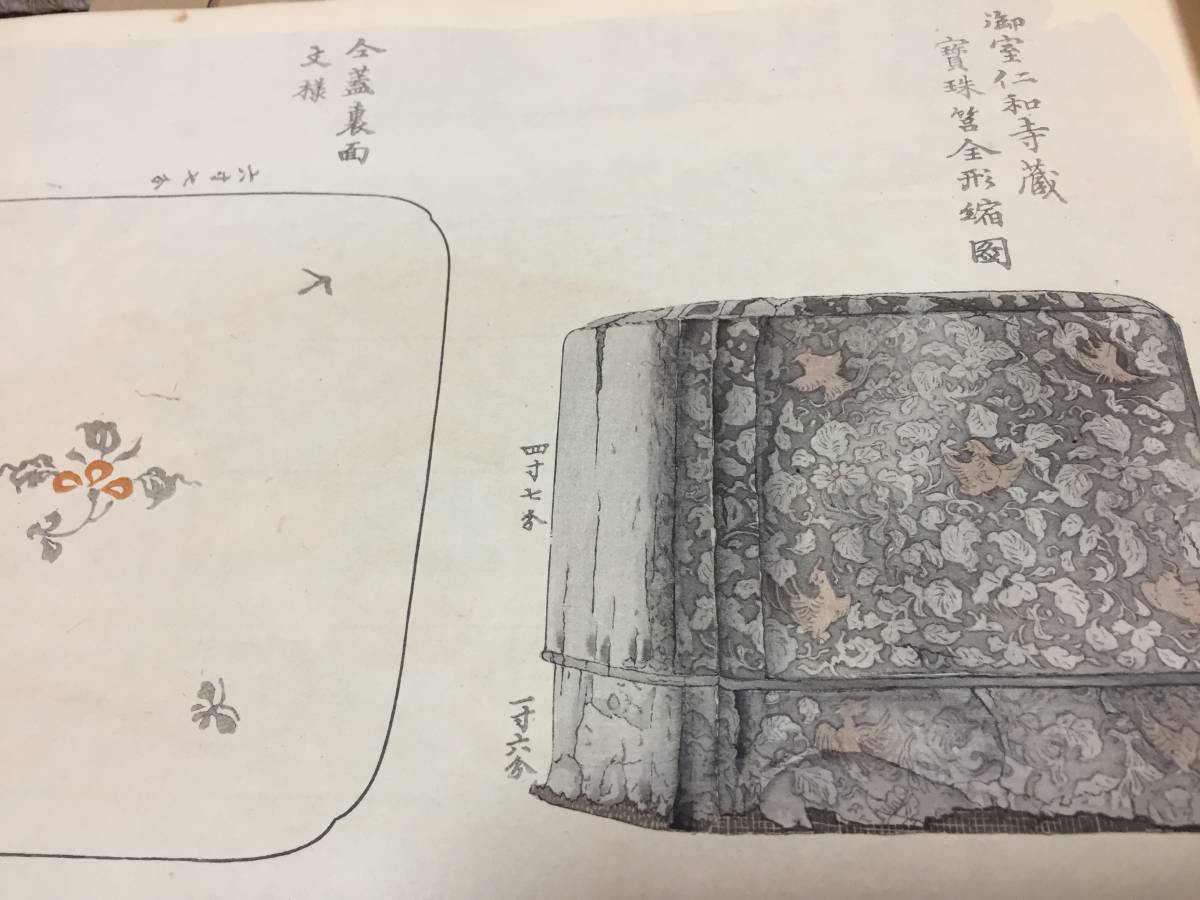 御室仁和寺蔵
寶珠筥全形縮圖
仝蓋裏面
文様
六寸七分
四寸七分
一寸六分